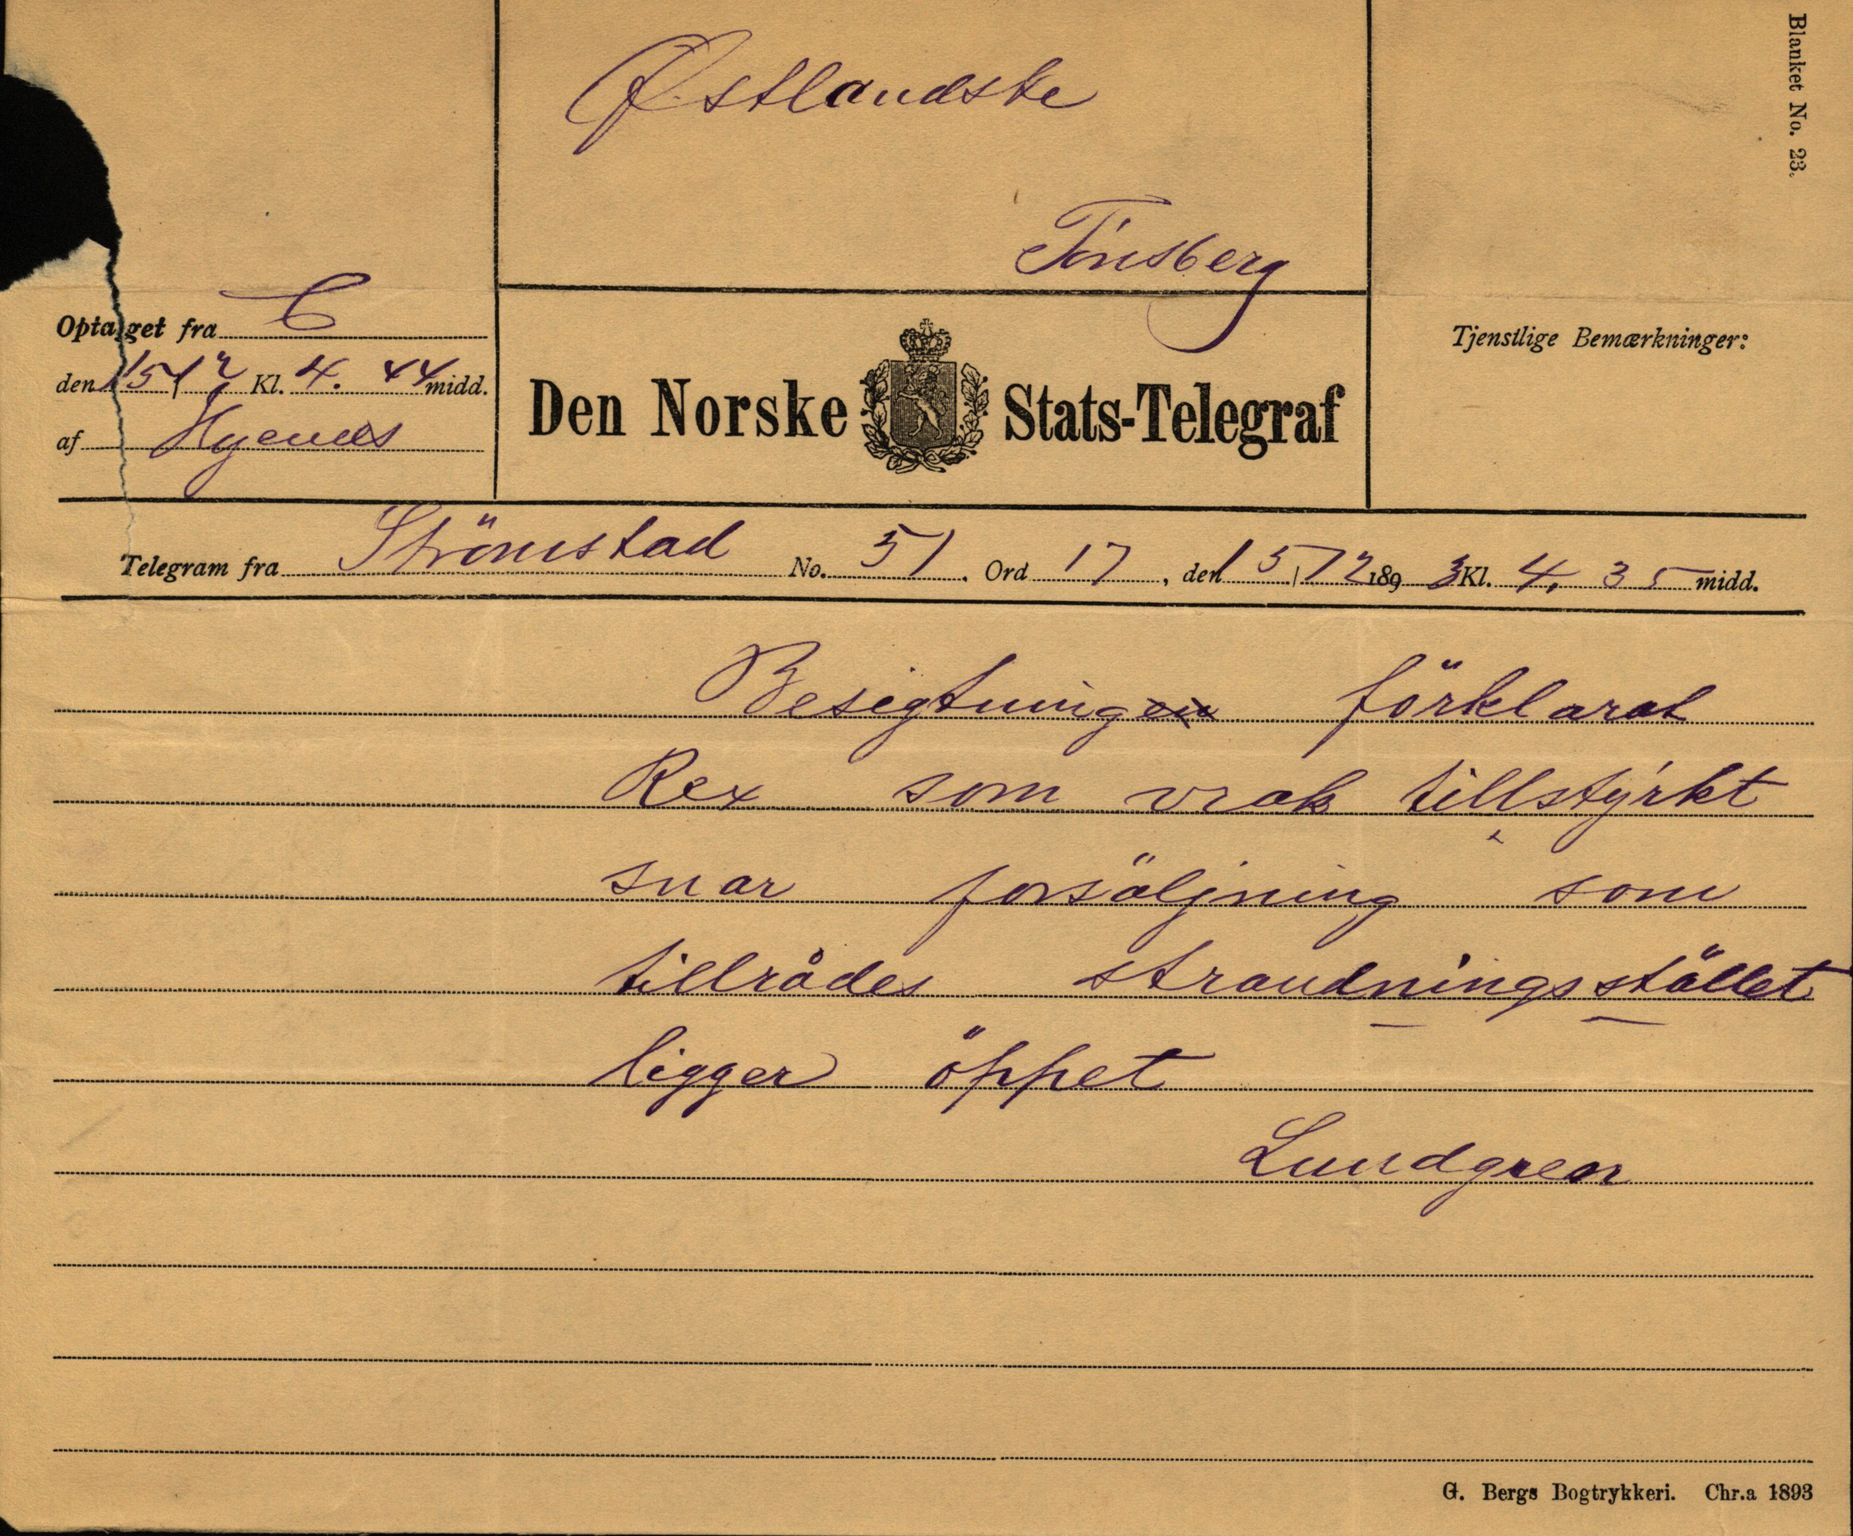 Blanket No. 23.
Østlandske
Tönsberg
Optaget fra C
den 15/12 Kl. 4. 44 midd.
af
Den Norske Stats-Telegraf
Tjenstlige Bemærkninger:
Telegram fra Strömstad No. 51. Ord 17, den 15/12 1893 Kl. 4. 35 midd.
Besigtning förklarat
Rex som vrak tillstyrkt
snar forsäljning som
tillrådes strandningsstället
ligger öppet
Lundgren
G. Bergs Bogtrykkeri. Chr.a 1893